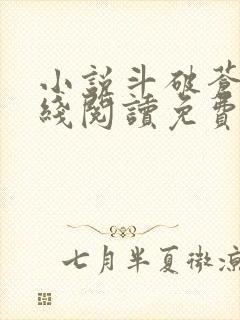 小說斗破蒼
綫閱讀免費
七月半夏微涼